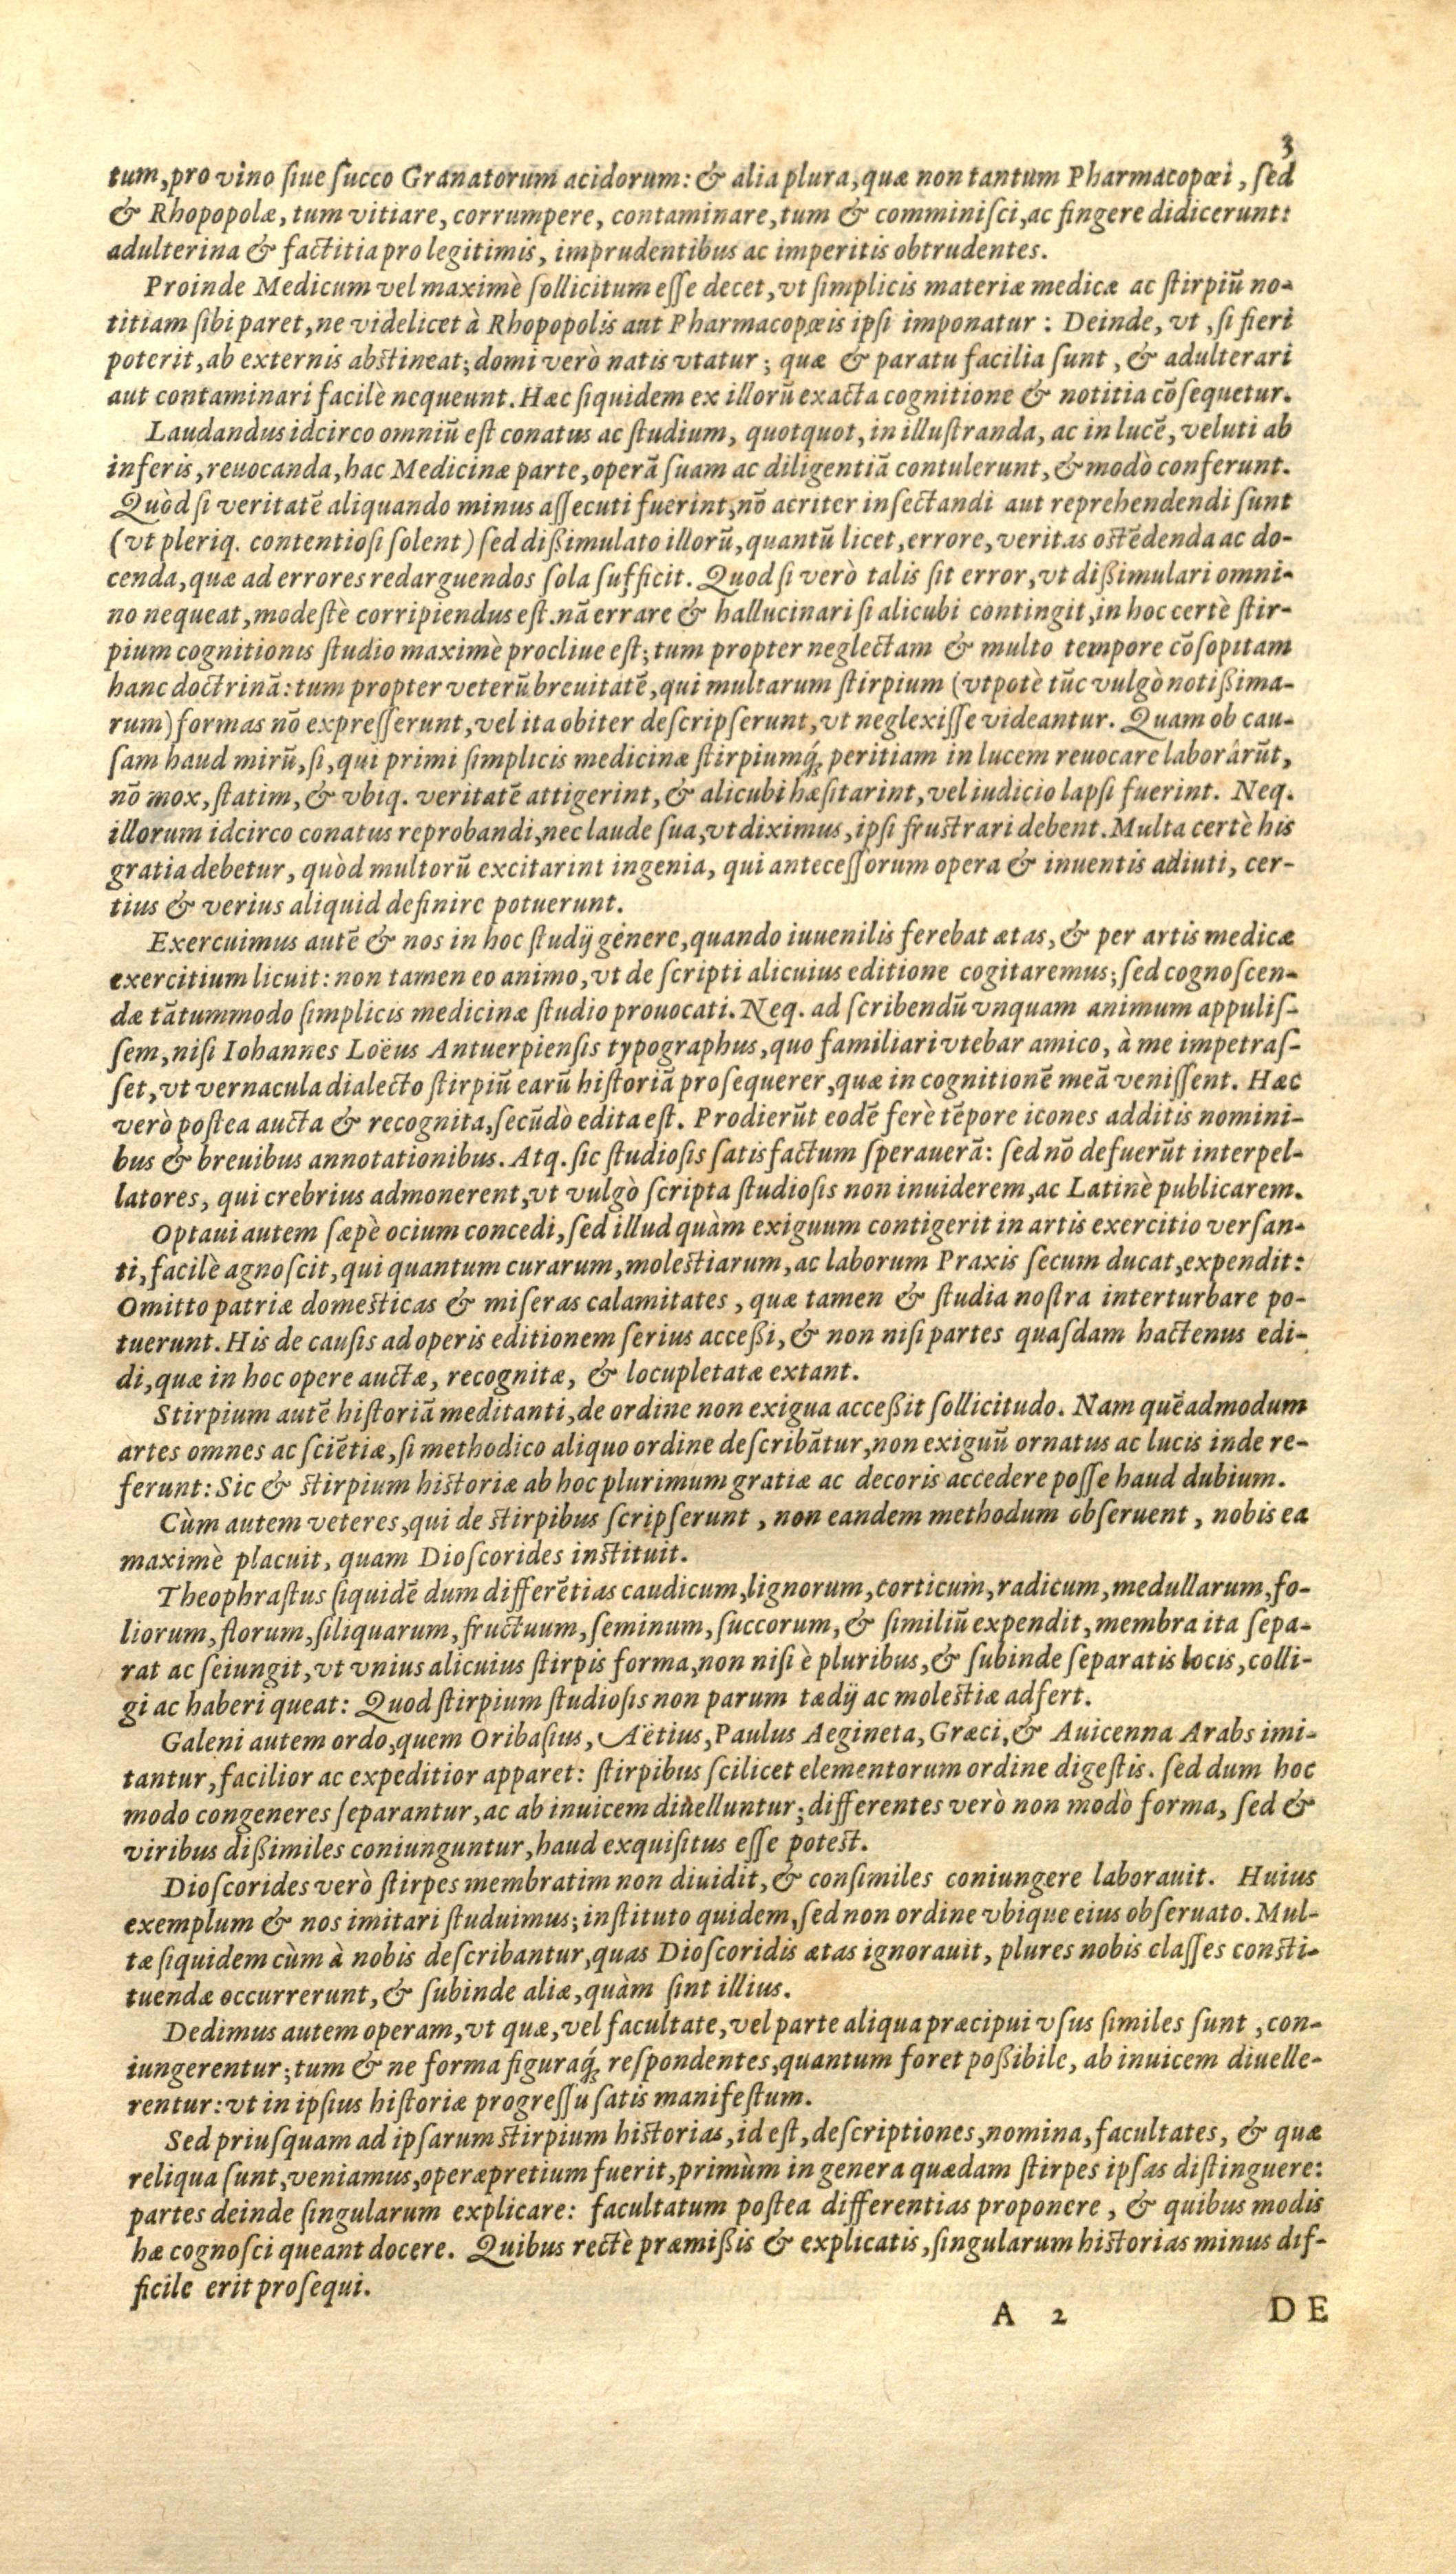 3
tum, pro vino siue succo Granatorum acidorum: & alia plura, quæ non tantum Pharmacopœi, sed
& Rhopopolæ, tum vitiare, corrumpere, contaminare, tum & comminisci, ac fingere didicerunt:
adulterina & factitia pro legitimis, imprudentibus ac imperitis obtrudentes.
Proinde Medicum vel maximè sollicitum esse decet, vt simplicis materiæ medicæ ac stirpiũ no-
titiam sibi paret, ne videlicet à Rhopopolis aut Pharmacopœis ipsi imponatur: Deinde, vt, si fieri
poterit, ab externis abstineat; domi verò natis vtatur; quæ & paratu facilia sunt, & adulterari
aut contaminari facilè nequeunt. Hæc siquidem ex illorũ exacta cognitione & notitia cõsequetur.
Laudandus idcirco omniũ est conatus ac studium, quotquot, in illustranda, ac in lucẽ, veluti ab
inferis, reuocanda, hac Medicinæ parte, operã suam ac diligentiã contulerunt, & modò conferunt.
Quòd si veritatẽ aliquando minus assecuti fuerint, nõ acriter insectandi aut reprehendendi sunt
(vt pleriq. contentiosi solent) sed dißimulato illorũ, quantũ licet, errore, veritas ostẽdenda ac do-
cenda, quæ ad errores redarguendos sola sufficit. Quod si verò talis sit error, vt dißimulari omni-
no nequeat, modestè corripiendus est. nã errare & hallucinari si alicubi contingit, in hoc certè stir-
pium cognitionis studio maximè procliue est; tum propter neglectam & multo tempore cõsopitam
hanc doctrinã: tum propter veterũ breuitatẽ, qui multarum stirpium (vtpotè tũc vulgò notißima-
rum) formas nõ expresserunt, vel ita obiter descripserunt, vt neglexisse videantur. Quam ob cau-
sam haud mirũ, si, qui primi simplicis medicinæ stirpiumq́; peritiam in lucem reuocare laborârũt,
nõ mox, statim, & vbiq. veritatẽ attigerint, & alicubi hæsitarint, vel iudicio lapsi fuerint. Neq.
illorum idcirco conatus reprobandi, nec laude sua, vt diximus, ipsi frustrari debent. Multa certè his
gratia debetur, quòd multorũ excitarint ingenia, qui antecessorum opera & inuentis adiuti, cer-
tius & verius aliquid definire potuerunt.
Exercuimus autẽ & nos in hoc studij genere, quando iuuenilis ferebat ætas, & per artis medicæ
exercitium licuit: non tamen eo animo, vt de scripti alicuius editione cogitaremus; sed cognoscen-
dæ tãtummodo simplicis medicinæ studio prouocati. Neq. ad scribendũ vnquam animum appulis-
sem, nisi Iohannes Loëus Antuerpiensis typographus, quo familiari vtebar amico, à me impetras-
set, vt vernacula dialecto stirpiũ earũ historiã prosequerer, quæ in cognitionẽ meã venissent. Hæc
verò postea aucta & recognita, secũdò edita est. Prodierũt eodẽ ferè tẽpore icones additis nomini-
bus & breuibus annotationibus. Atq. sic studiosis satisfactum sperauerã: sed nõ defuerũt interpel-
latores, qui crebrius admonerent, vt vulgò scripta studiosis non inuiderem, ac Latinè publicarem.
Optaui autem sæpè ocium concedi, sed illud quàm exiguum contigerit in artis exercitio versan-
ti, facilè agnoscit, qui quantum curarum, molestiarum, ac laborum Praxis secum ducat, expendit:
Omitto patriæ domesticas & miseras calamitates, quæ tamen & studia nostra interturbare po-
tuerunt. His de causis ad operis editionem serius acceßi, & non nisi partes quasdam hactenus edi-
di, quæ in hoc opere auctæ, recognitæ, & locupletatæ extant.
Stirpium autẽ historiã meditanti, de ordine non exigua acceßit sollicitudo. Nam quẽadmodum
artes omnes ac sciẽtiæ, si methodico aliquo ordine describãtur, non exiguũ ornatus ac lucis inde re-
ferunt: Sic & stirpium historiæ ab hoc plurimum gratiæ ac decoris accedere posse haud dubium.
Cùm autem veteres, qui de stirpibus scripserunt, non eandem methodum obseruent, nobis ea
maximè placuit, quam Dioscorides instituit.
Theophrastus siquidẽ dum differẽtias caudicum, lignorum, corticum, radicum, medullarum, fo-
liorum, florum, siliquarum, fructuum, seminum, succorum, & similiũ expendit, membra ita sepa-
rat ac seiungit, vt vnius alicuius stirpis forma, non nisi è pluribus, & subinde separatis locis, colli-
gi ac haberi queat: Quod stirpium studiosis non parum tædij ac molestiæ adfert.
Galeni autem ordo, quem Oribasius, Aëtius, Paulus Aegineta, Græci, & Auicenna Arabs imi-
tantur, facilior ac expeditior apparet: stirpibus scilicet elementorum ordine digestis. sed dum hoc
modo congeneres separantur, ac ab inuicem diuelluntur; differentes verò non modò forma, sed &
viribus dißimiles coniunguntur, haud exquisitus esse potest.
Dioscorides verò stirpes membratim non diuidit, & consimiles coniungere laborauit. Huius
exemplum & nos imitari studuimus; instituto quidem, sed non ordine vbique eius obseruato. Mul-
tæ siquidem cùm à nobis describantur, quas Dioscoridis ætas ignorauit, plures nobis classes consti-
tuendæ occurrerunt, & subinde aliæ, quàm sint illius.
Dedimus autem operam, vt quæ, vel facultate, vel parte aliqua præcipui vsus similes sunt, con-
iungerentur; tum & ne forma figuraq́; respondentes, quantum foret poßibile, ab inuicem diuelle-
rentur: vt in ipsius historiæ progressu satis manifestum.
Sed priusquam ad ipsarum stirpium historias, id est, descriptiones, nomina, facultates, & quæ
reliqua sunt, veniamus, operæpretium fuerit, primùm in genera quædam stirpes ipsas distinguere:
partes deinde singularum explicare: facultatum postea differentias proponere, & quibus modis
hæ cognosci queant docere. Quibus rectè præmißis & explicatis, singularum historias minus dif-
ficile erit prosequi.
A 2 DE